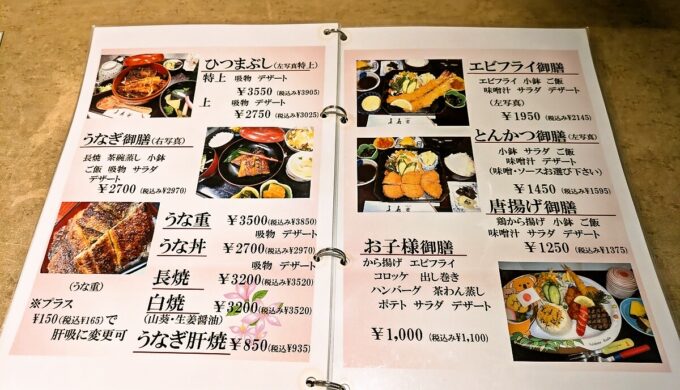 ひつまぶし(左写真特上)
特上 吸物 デザート
￥3550(税込み¥3905)
上 吸物 デザート
￥2750(税込み¥3025)
うなぎ御膳(右写真)
長焼 茶碗蒸し 小鉢
ご飯 吸物 サラダ
デザート
￥2700(税込み¥2970)
うな重 ￥3500(税込み¥3850)
吸物 デザート
うな丼 ￥2700(税込み¥2970)
吸物 デザート
長焼 ￥3200(税込み¥3520)
白焼 ￥3200(税込み¥3520)
(山葵・生姜醤油)
うなぎ肝焼 ￥850(税込¥935)
(うな重)
※プラス
¥150(税込¥165)で
肝吸に変更可
エビフライ御膳
エビフライ 小鉢 ご飯
味噌汁 サラダ デザート
(左写真)
￥1950(税込み¥2145)
とんかつ御膳(左写真)
小鉢 サラダ ご飯
味噌汁 デザート
(味噌・ソースお選び下さい)
￥1450(税込み¥1595)
唐揚げ御膳
鶏から揚げ 小鉢 ご飯
味噌汁 サラダ デザート
￥1250(税込み¥1375)
お子様御膳
から揚げ エビフライ
コロッケ 出し巻き
ハンバーグ 茶わん蒸し
ポテト サラダ デザート
￥1,000(税込み¥1,100)